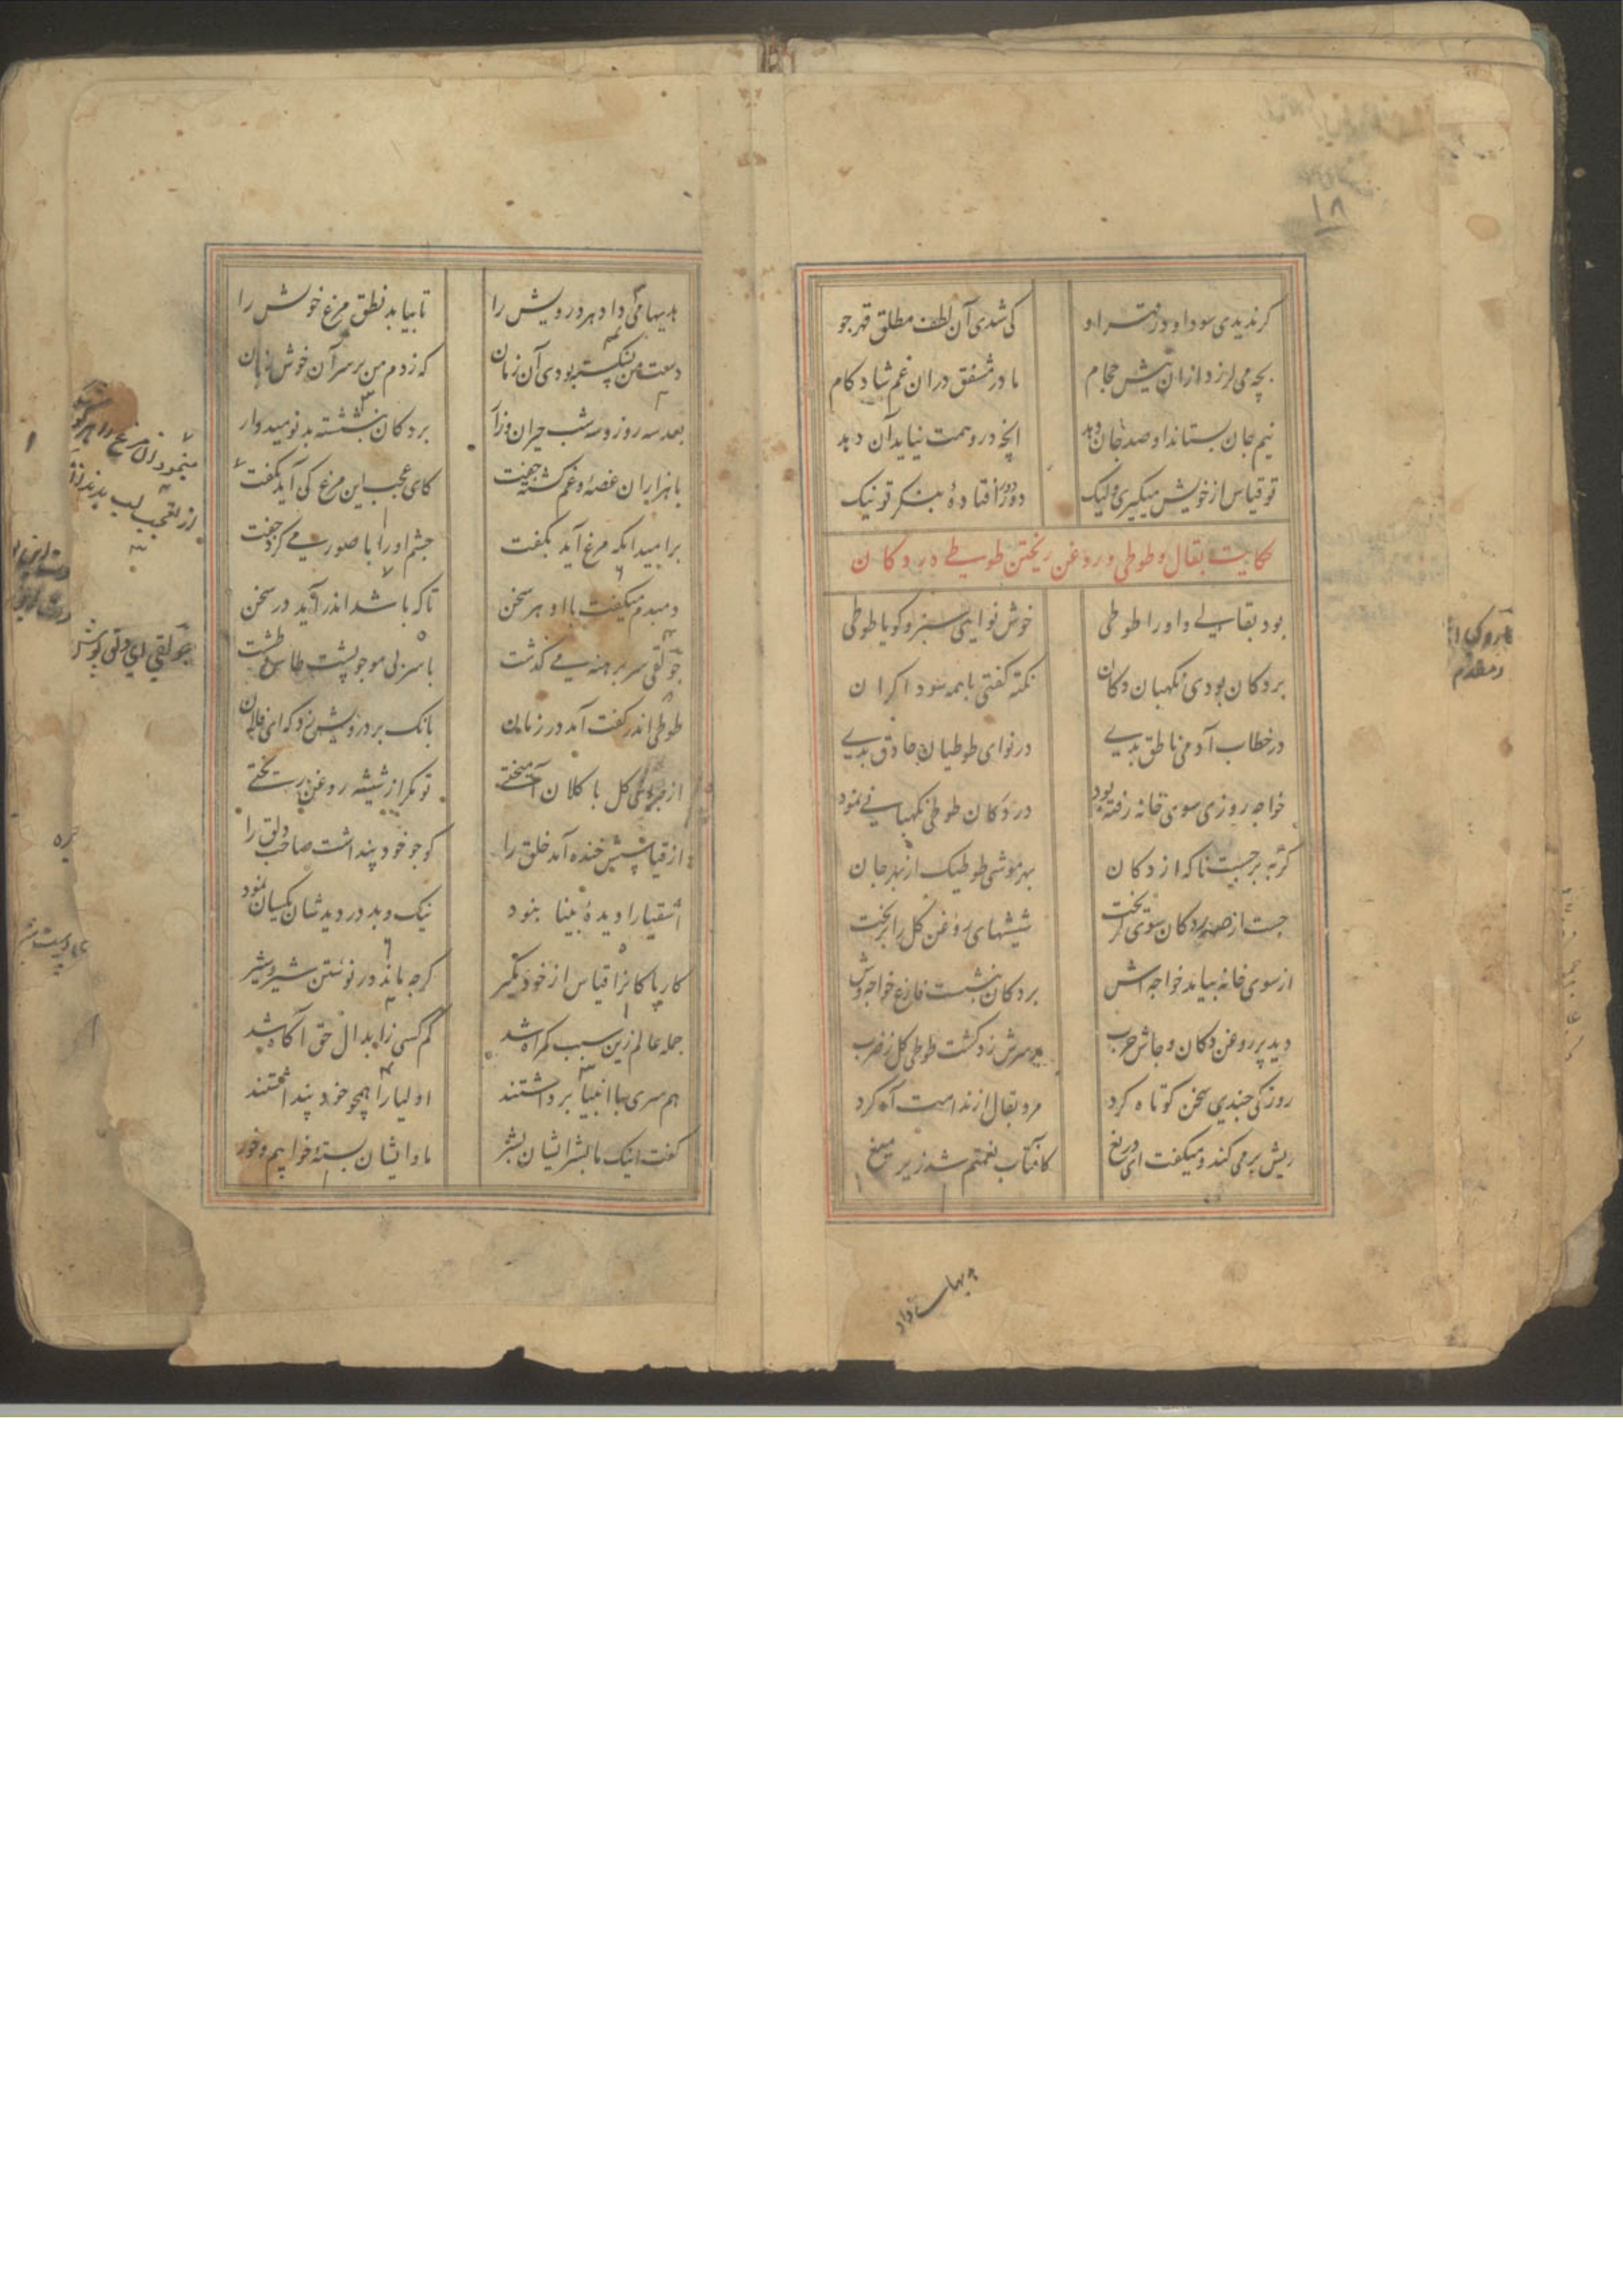 ۱۸
کر ندیدی سود او در قهر او	کی شدی آن لطف مطلق قهر جو
بچه می لرزد ازان نیش حجام	مادر مشفق دران غم شاد کام
نیم جان بستاند و صد جان دهد	انچه در وهمت نیاید آن دهد
تو قیاس از خویش میگیری ولیک	دور دور افتادهٔ بنکر تو نیک
حکایت بقال و طوطی و روغن ریختن طوطی در دکان
بود بقالی و اورا طوطی	خوش نوایی سبز و کویا طوطی
بر دکان بودی نکهبان دکان	نکته کفتی با همه سوداکران
در خطاب آدمی ناطق بدی	در نوای طوطیان حاذق بدی
خواجه روزی سوی خانه رفته بود	در دکان طوطی نکهبانی نمود
کربه برجست ناکه از دکان	بهر موشی طوطیک از بهر جان
جست از صدر دکان سوی کریخت	شیشهای روغن کل را بریخت
از سوی خانه بیامد خواجه اش	بر دکان بنشست فارغ خواجه وش
دید پر روغن دکان و جاش چرب	بر سرش زد کشت طوطی کل ز ضرب
روزکی چندی سخن کوتاه کرد	مرد بقال از ندامت آه کرد
ریش بر می کند و میکفت ای دریغ	کافتاب نعمتم شد زیر میغ
هدیها می داد هر درویش را	تا بیابد نطق مرغ خویش را
دست من بشکسته بودی آن زمان	که زدم من بر سر آن خوش زبان
بعد سه روز و سه شب حیران و زار	بر دکان بنشسته بد نومیدوار
با هزاران غصه و غم کشته جفت	کای عجب این مرغ کی آید بکفت
بر امید انکه مرغ آید بکفت	چشم اورا با صور می کرد جفت
دمبدم میکفت با او هر سخن	تا که باشد اندر آید در سخن
جولقی سر برهنه می کذشت	با سر بی مو چو پشت طاس و طشت
طوطی اندر کفت آمد در زمان	بانک بر درویش زد که ای فلان
از چه ای کل با کلان آمیختی	تو مکر از شیشه روغن ریختی
از قیاسش خنده آمد خلق را	کو چو خود پنداشت صاحب دلق را
اشقیا را دیدهٔ بینا نبود	نیک و بد در دیدشان یکسان نمود
کار پاکانرا قیاس از خود مکیر	کرچه ماند در نوشتن شیر و شیر
جمله عالم زین سبب کمراه شد	کم کسی ز ابدال حق آکاه شد
هم سری با انبیا برداشتند	اولیا را همچو خود پنداشتند
کفت اینک ما بشر ایشان بشر	ما و ایشان بستهٔ خوابیم و خور
مینمود آن مرغ را هر کون
از تعجب لب بدندان
جولقی ای دلق پوش
هدیها میداد